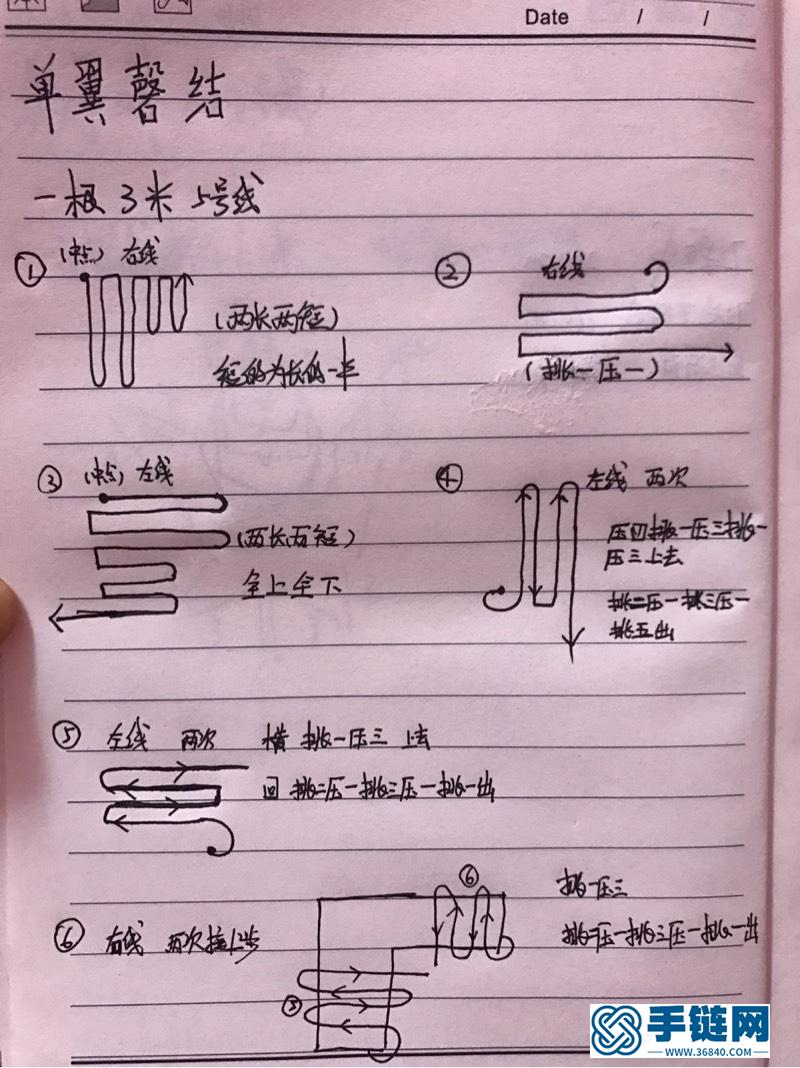 Date / /
单翼磬结
一根3米 5号线
① (中点) 右线
(两长两短)
短的为长的一半
② 右线
(挑一压一)
③ (中点) 左线
(两长两短)
全上全下
④ 左线 两次
压四挑一压三挑一
压三上去
挑二压一挑三压一
挑五出
⑤ 左线 两次 横 挑一压三 上去
回 挑二压一挑三压一挑一出
⑥ 右线 两次接上步
⑥
⑤
挑一压三
挑二压一挑三压一挑一出
手链网
WWW.36840.COM